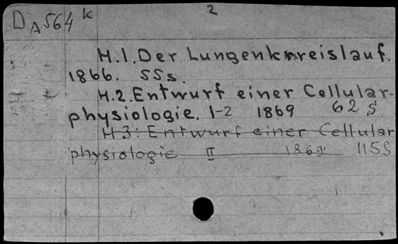 D A 564 k
2
H.1. Der Lungenkreislauf.
1866. 55s.
H.2. Entwurf einer Cellular-
physiologie. 1-2 1869 62 S
H 3: Entwurf einer Cellular
physiologie II 1869. 115S